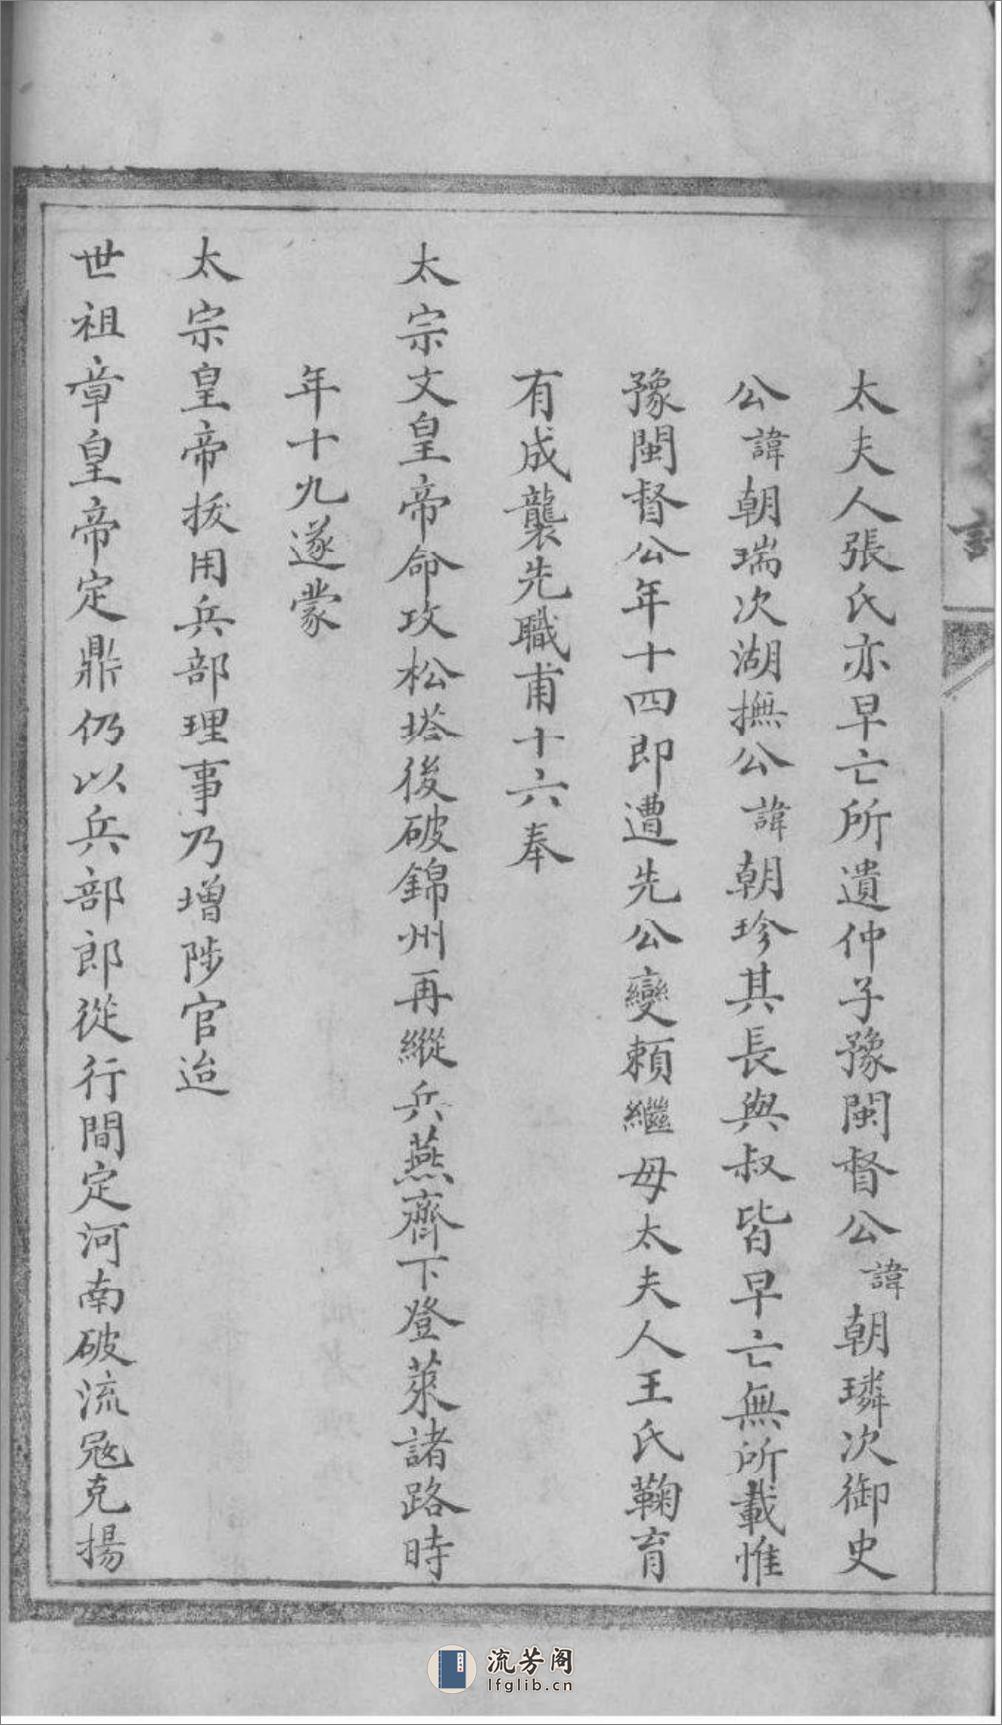 太夫人張氏亦早亡所遺仲子豫閩督公諱朝璘次御史
公諱朝瑞次湖撫公諱朝珍其長與叔皆早亡無所載惟
豫閩督公年十四即遭先公變頼繼母太夫人王氏鞠育
有成襲先職甫十六奉
太宗文皇帝命攻松塔後破錦州再縱兵燕齊下登萊諸路時
年十九遂蒙
太宗皇帝拔用兵部理事乃增陟官迨
世祖章皇帝定鼎仍以兵部郎從行間定河南破流冦克揚
流芳阁
lfglib.cn